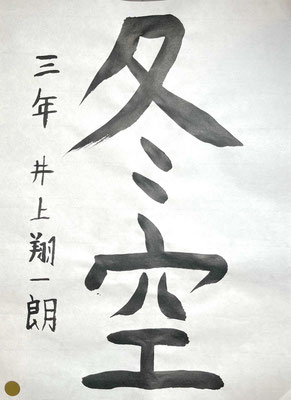 冬空
三年 井上翔一朗